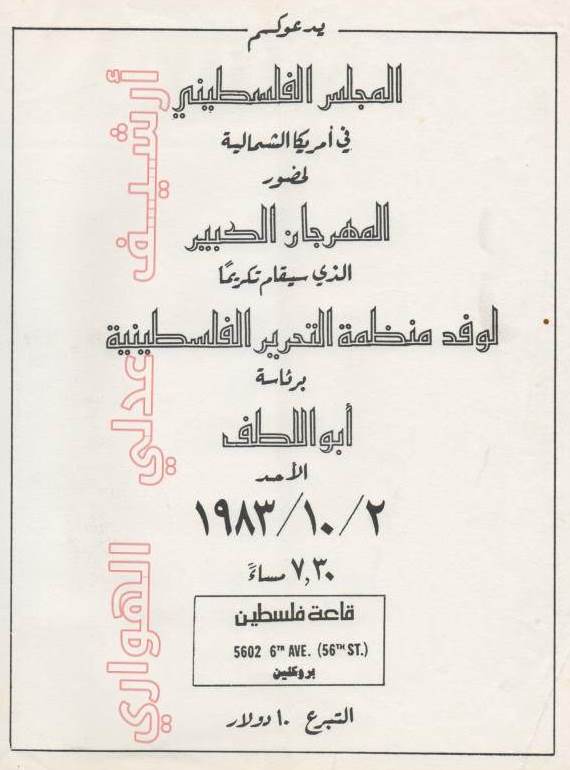 يدعوكم
المجلس الفلسطيني
في أمريكا الشمالية
لحضور
المهرجان الكبير
الذي سيقام تكريمًا
لوفد منظمة التحرير الفلسطينية
برئاسة
أبو اللطف
الأحد
١٩٨٣/١٠/٢
٧,٣٠ مساءً
قاعة فلسطين
5602 6TH AVE. (56TH ST.)
بروكلين
التبرع ١٠ دولار
أرشيف عدلي الهواري